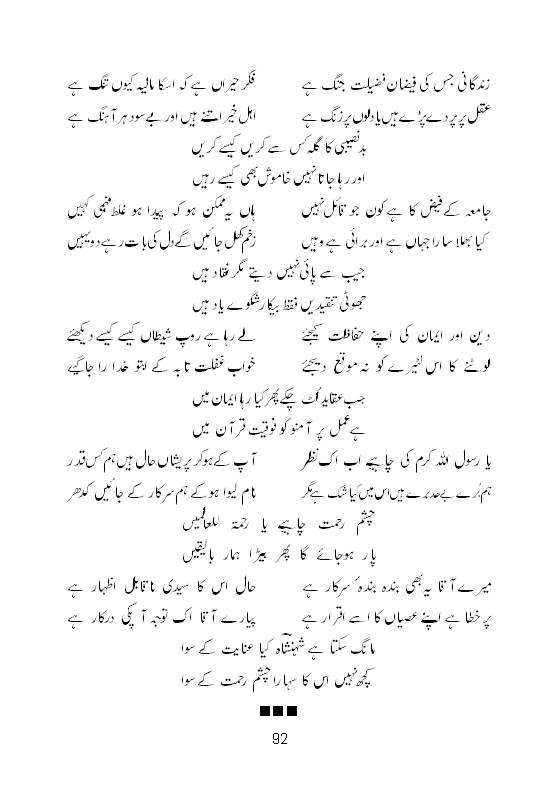 زندگانی جس کی فیضان فضیلت جنگ ہے فکر حیراں ہے کہ اسکا مالیہ کیوں تنگ ہے
عقل پر پردے پڑے ہیں یا دلوں پر زنگ ہے اہل خیر اتنے ہیں اور بے سود ہر آہنگ ہے
بدنصیبی کا گلہ کس سے کریں کیسے کریں
اور رہا جاتا نہیں خاموش بھی کیسے رہیں
جامعہ کے فیض کا ہے کون جو قائل نہیں ہاں یہ ممکن ہو کہ پیدا ہو غلط فہمی کہیں
کیا بھلا سارا جہاں ہے اور برائی ہے وہیں زخم کھل جائیں گے دل کی بات رہے دو یہیں
جیب سے پائی نہیں دیتے مگر نقاد ہیں
جھوٹی تنقیدیں فقط بیکار شکوے یاد ہیں
دین اور ایمان کی اپنے حفاظت کیجئے لے رہا ہے روپ شیطاں کیسے کیسے دیکھئے
لوٹنے کا اس لٹیرے کو نہ موقع دیجئے خواب غفلت تا بہ کے ابتو خدا را جاگیے
جب عقاید لٹ چکے پھر کیا رہا ایمان میں
ہے عمل پر آمنو کو فوقیت قرآن میں
یا رسول اللہ کرم کی چاہیے اب اک نظر آپ کے ہوکر پریشاں حال ہیں ہم کس قدر
ہم بُرے بے حد بُرے ہیں اس میں کیا شک ہے مگر نام لیوا ہو کے ہم سرکار کے جائیں کدھر
چشم رحمت چاہیے یا رحمۃ للعالمیں
پار ہوجائے گا پھر بیڑا ہمار بالیقیں
میرے آقا یہ بھی بندہ بندہٴ سرکار ہے حال اس کا سیدی ناقابل اظہار ہے
پر خطا ہے اپنے عصیاں کا اسے اقرار ہے پیارے آقا اک توجہ آپکی درکار ہے
مانگ سکتا ہے شہنشاہ کیا عنایت کے سوا
کچھ نہیں اس کا سہارا چشم رحمت کے سوا
92